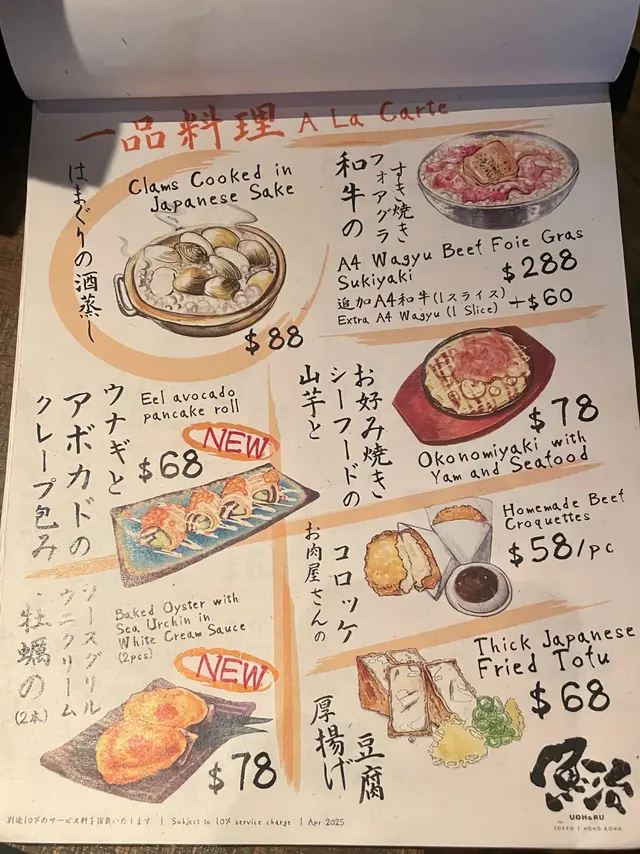 一品料理 A La Carte
はまぐりの酒蒸し
Clams Cooked in
Japanese Sake
$88
すき焼き
フォアグラ
和牛の
A4 Wagyu Beef Foie Gras
Sukiyaki
$288
追加A4和牛(1スライス)
Extra A4 Wagyu (1 Slice)
+$60
ウナギと
アボカドの
クレープ包み
Eel avocado
pancake roll
NEW
$68
お好み焼き
シーフードの
山芋と
$78
Okonomiyaki with
Yam and Seafood
Homemade Beef
Croquettes
$58/pc
コロッケ
お肉屋さんの
ソースグリル
ウニクリーム
牡蠣の
(2本)
Baked Oyster with
Sea Urchin in
White Cream Sauce
(2pcs)
NEW
$78
Thick Japanese
Fried Tofu
$68
豆腐
厚揚げ
魚治
UOHARU
TOKYO | HONG KONG
別途10%のサービス料を頂戴いたします | Subject to 10% service charge | Apr 2025